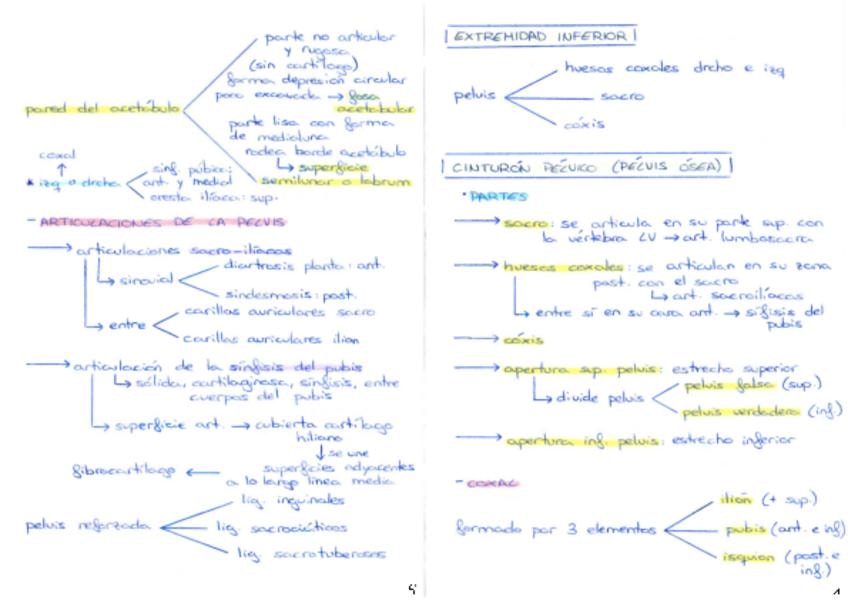 parte no articular
y rugosa
(sin cartílago)
forma depresión circular
poco excavada → fosa
acetabular
pared del acetábulo
parte lisa con forma
de medialuna
rodea borde acetábulo
↳ superficie
semilunar o labrum
coxal
↑
* izq o drcho
sinf. púbica:
ant. y medial
cresta ilíaca: sup.
- ARTICULACIONES DE LA PELVIS
→ articulaciones sacro-ilíacas
↳ sinovial
diartrosis plana: ant.
sindesmosis: post.
↳ entre
carillas auriculares sacro
carillas auriculares ilion
→ articulación de la sínfisis del pubis
↳ sólida, cartilaginosa, sínfisis, entre
cuerpos del pubis
↳ superficie art. → cubierta cartílago
hialino
↓ se une
fibrocartílago ← superficies adyacentes
a lo largo línea media
pelvis reforzada
lig. inguinales
lig. sacrociáticos
lig. sacrotuberosos
5
EXTREMIDAD INFERIOR
pelvis
huesos coxales drcho e izq
sacro
cóxis
CINTURÓN PÉLVICO (PELVIS ÓSEA)
• PARTES
→ sacro: se articula en su parte sup. con
la vértebra LV → art. lumbosacra
→ huesos coxales: se articulan en su zona
post. con el sacro
↳ art. sacroilíacas
↳ entre sí en su cara ant. → sífisis del
pubis
→ cóxis
→ apertura sup. pelvis: estrecho superior
↳ divide pelvis
pelvis falsa (sup.)
pelvis verdadera (inf.)
→ apertura inf. pelvis: estrecho inferior
- COXAL
formado por 3 elementos
ilion (+ sup.)
pubis (ant. e inf)
isquion (post. e
inf.)